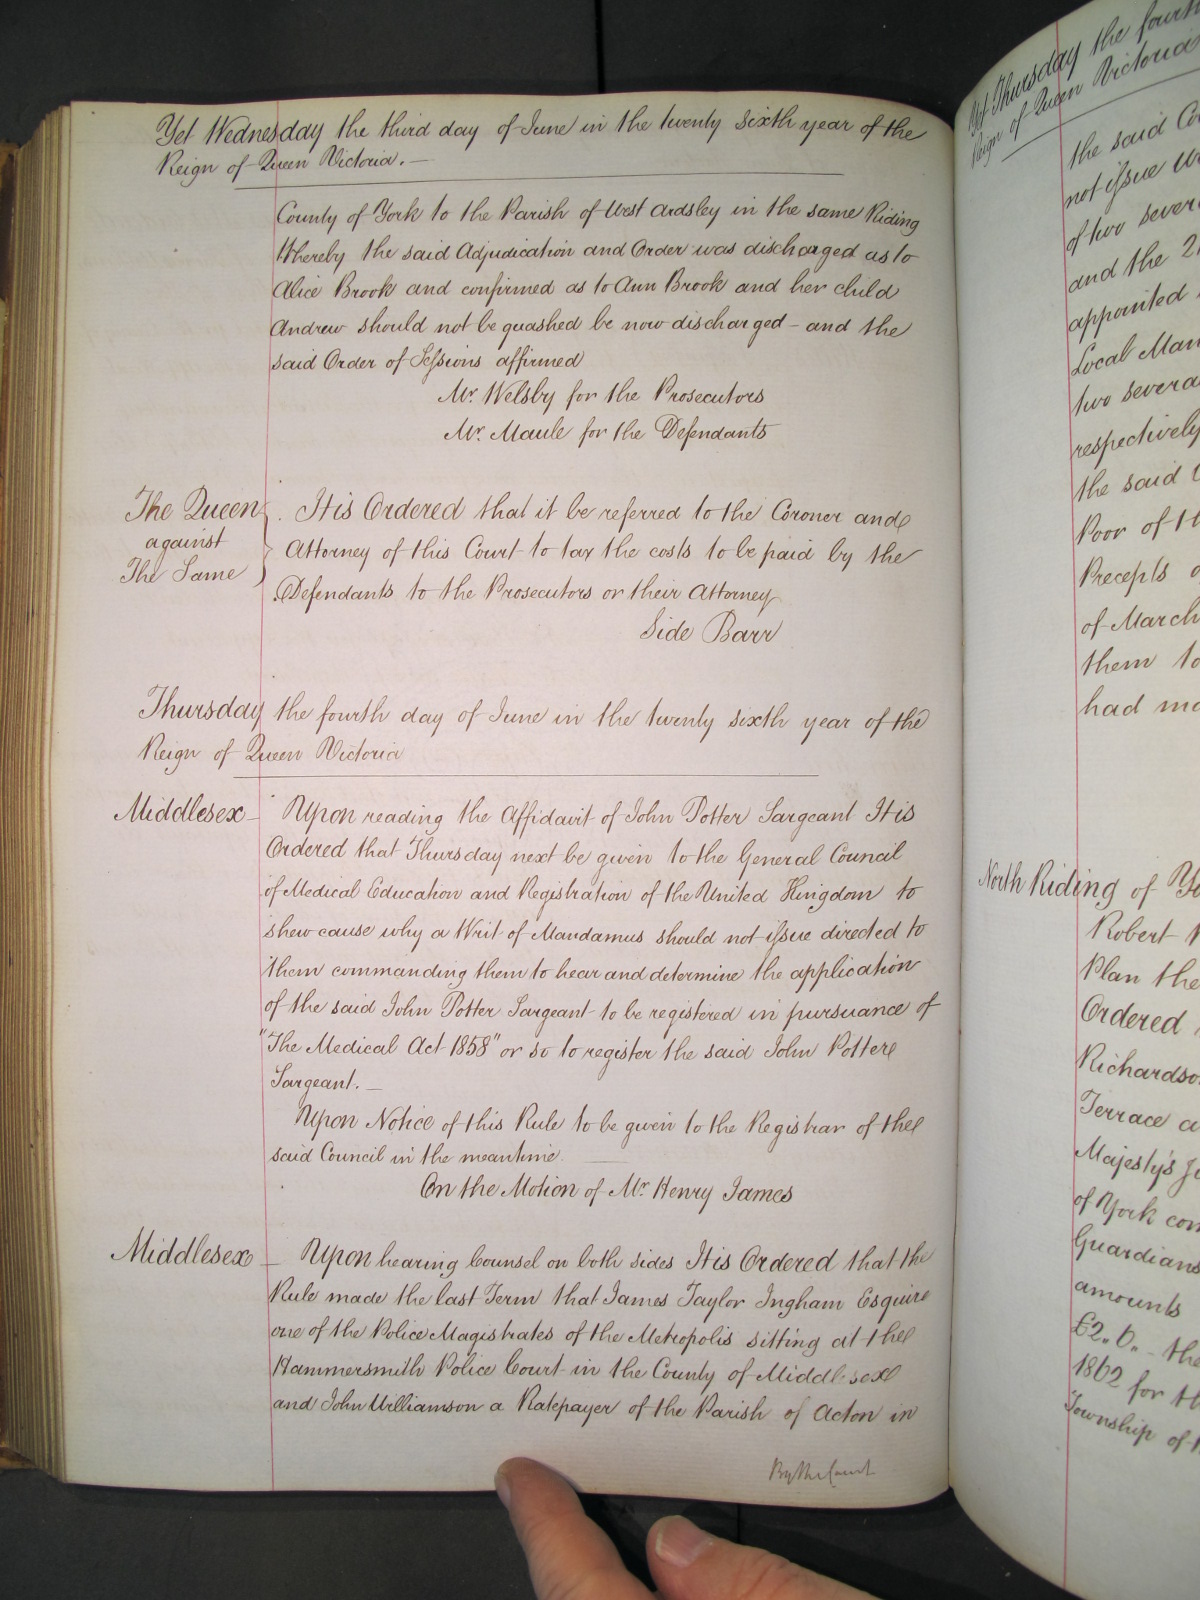 Yet Wednesday the third day of June in the twenty sixth year of the
Reign of Queen Victoria. —
County of York to the Parish of West Ardsley in the same Riding
Whereby the said Adjudication and Order was discharged as to
Alice Brook and confirmed as to Ann Brook and her child
Andrew should not be quashed be now discharged – and the
said Order of Sessions affirmed
Mr. Welsby for the Prosecutors
Mr. Maule for the Defendants
The Queen
against
The Same
It is Ordered that it be referred to the Coroner and
Attorney of this Court to tax the costs to be paid by the
Defendants to the Prosecutors or their Attorney
Side Barr
Thursday the fourth day of June in the twenty sixth year of the
Reign of Queen Victoria
Middlesex – Upon reading the Affidavit of John Potter Sargeant It is
Ordered that Thursday next be given to the General Council
of Medical Education and Registration of the United Kingdom to
shew cause why a Writ of Mandamus should not issue directed to
them commanding them to hear and determine the application
of the said John Potter Sargeant to be registered in pursuance of
"The Medical Act 1858" or so to register the said John Potter
Sargeant. —
Upon Notice of this Rule to be given to the Registrar of the
said Council in the meantime.
On the Motion of Mr. Henry James
Middlesex – Upon hearing Counsel on both sides It is Ordered that the
Rule made the last Term that James Taylor Ingham Esquire
one of the Police Magistrates of the Metropolis sitting at the
Hammersmith Police Court in the County of Middlesex
and John Williamson a Ratepayer of the Parish of Acton in
By the Court
Yet Thursday the fourth
Reign of Queen Victoria
the said
not issue
of two
and the
appointed
Local
two
respectively
the said
Poor of
Precepts
of March
them to
had
North Riding of
Robert
Plan the
Ordered
Richardson
Terrace
Majesty's
of York
Guardians
amounts
£2. 6. – the
1862 for
Township of